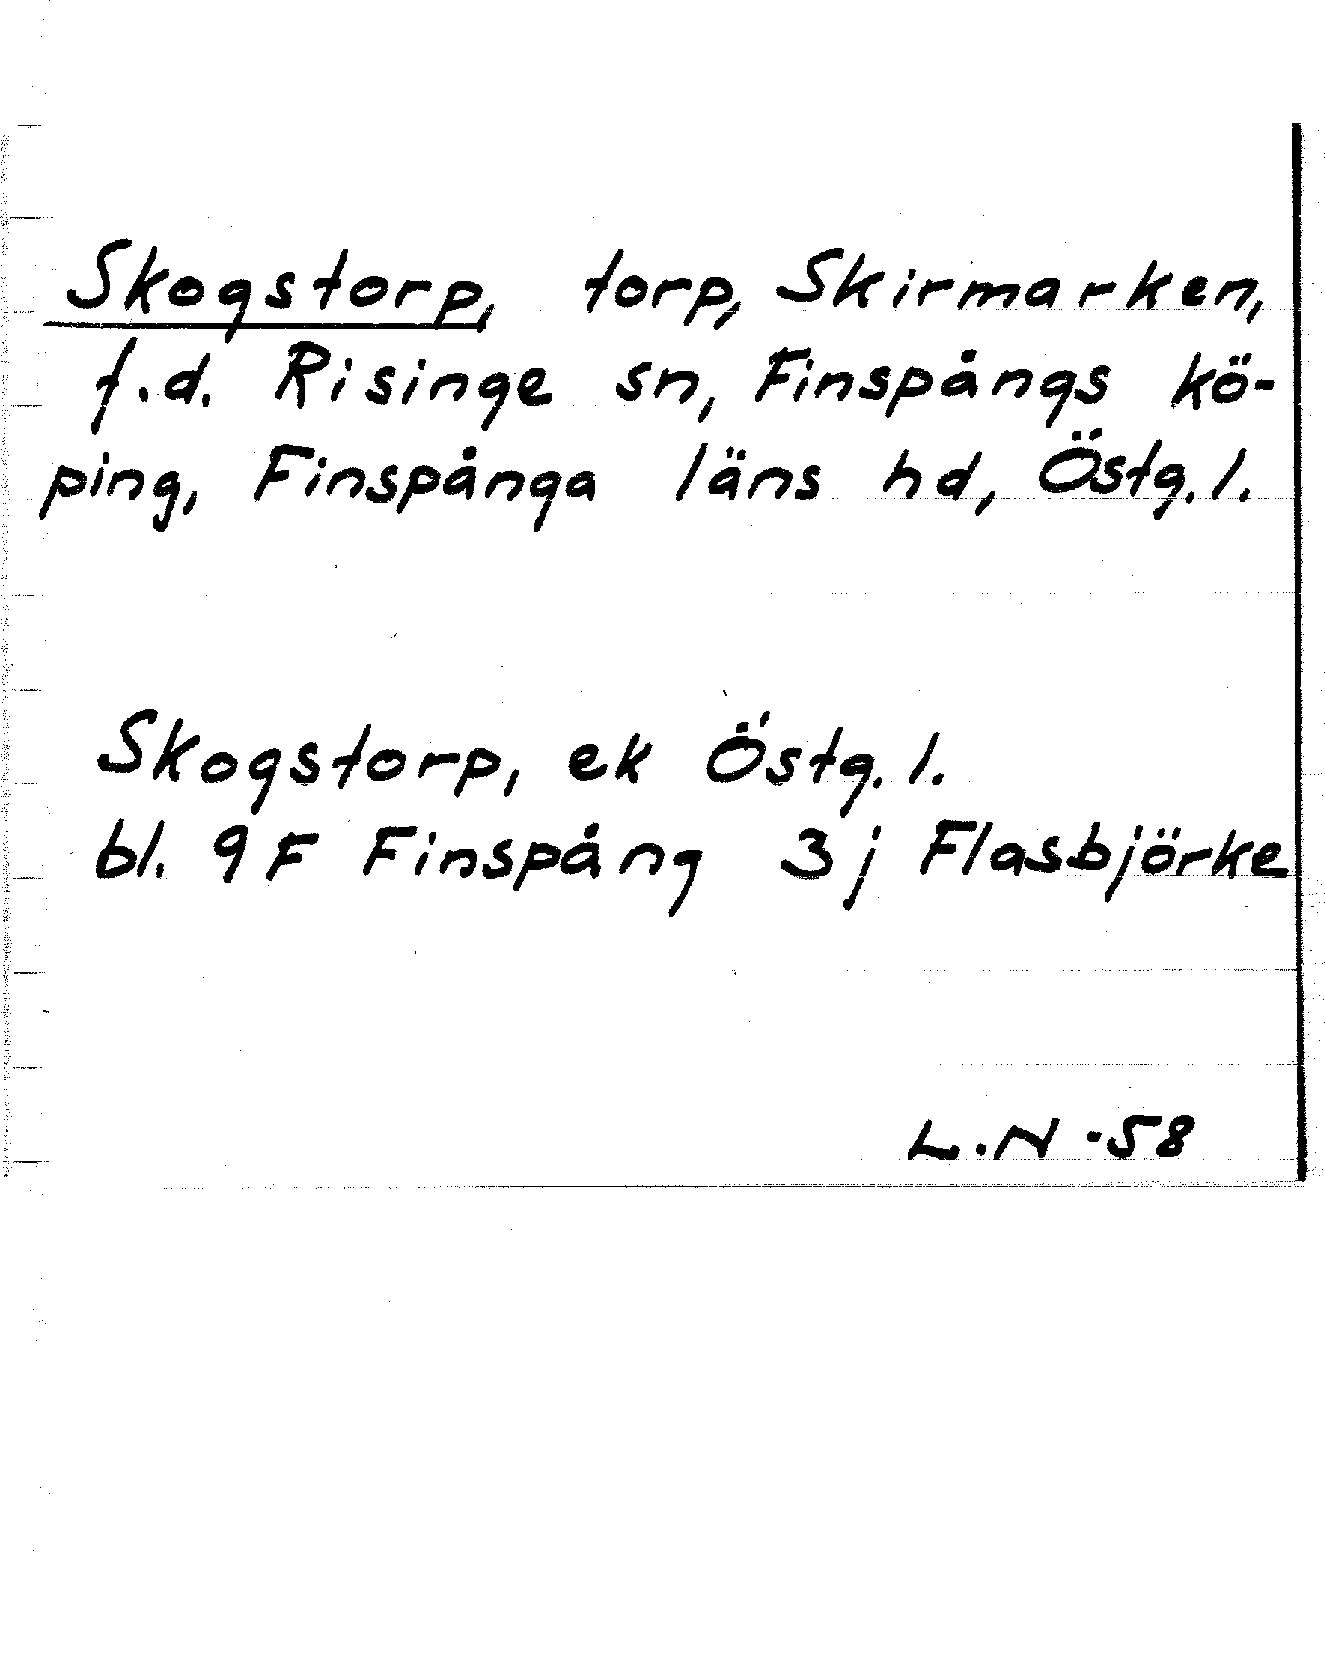 Skogstorp, torp, Skirmarken,
f.d. Risinge sn, Finspångs kö-
ping, Finspånga läns hd, Östg. l.
Skogstorp, ek Östg. l.
bl. 9F Finspång 3j Flasbjörke
L.N -58